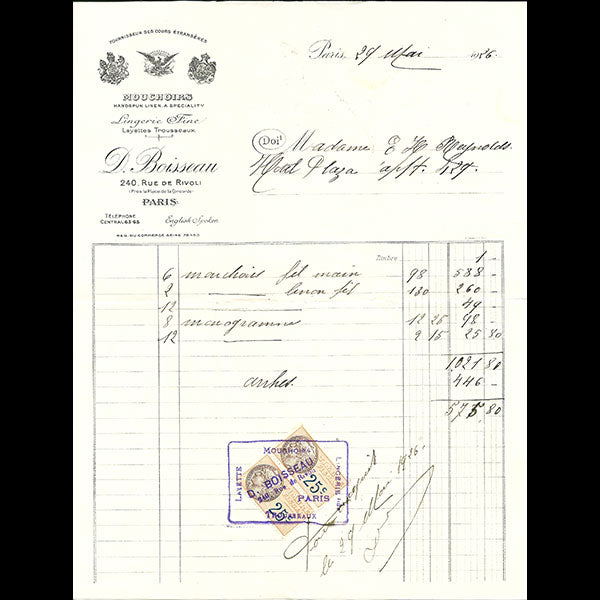 FOURNISSEUR DES COURS ÉTRANGÈRES
MOUCHOIRS
HANDSPUN LINEN, A SPECIALITY
Lingerie Fine
Layettes Trousseaux
D. Boisseau
240, RUE DE RIVOLI
(Près la Place de la Concorde)
PARIS
TÉLÉPHONE
CENTRAL 63-65
English Spoken
Paris, 29 Mai 1926
Doit Madame E. H. Reynolds
Hotel Plaza app.
Timbre 1 -
6 mouchoirs fil main 98 588 -
2 —— linon fil 130 260 -
12 —— 49 -
8 monogramme 12 25 98 -
12 —— 2 15 25 80
1,021 80
446 -
575 80
MOUCHOIRS
LAYETTE
LINGERIE FINE
D. BOISSEAU
240, Rue de Rivoli
PARIS
TROUSSEAUX
25c
25c
Pour acquit
le 29 Mai 1926.